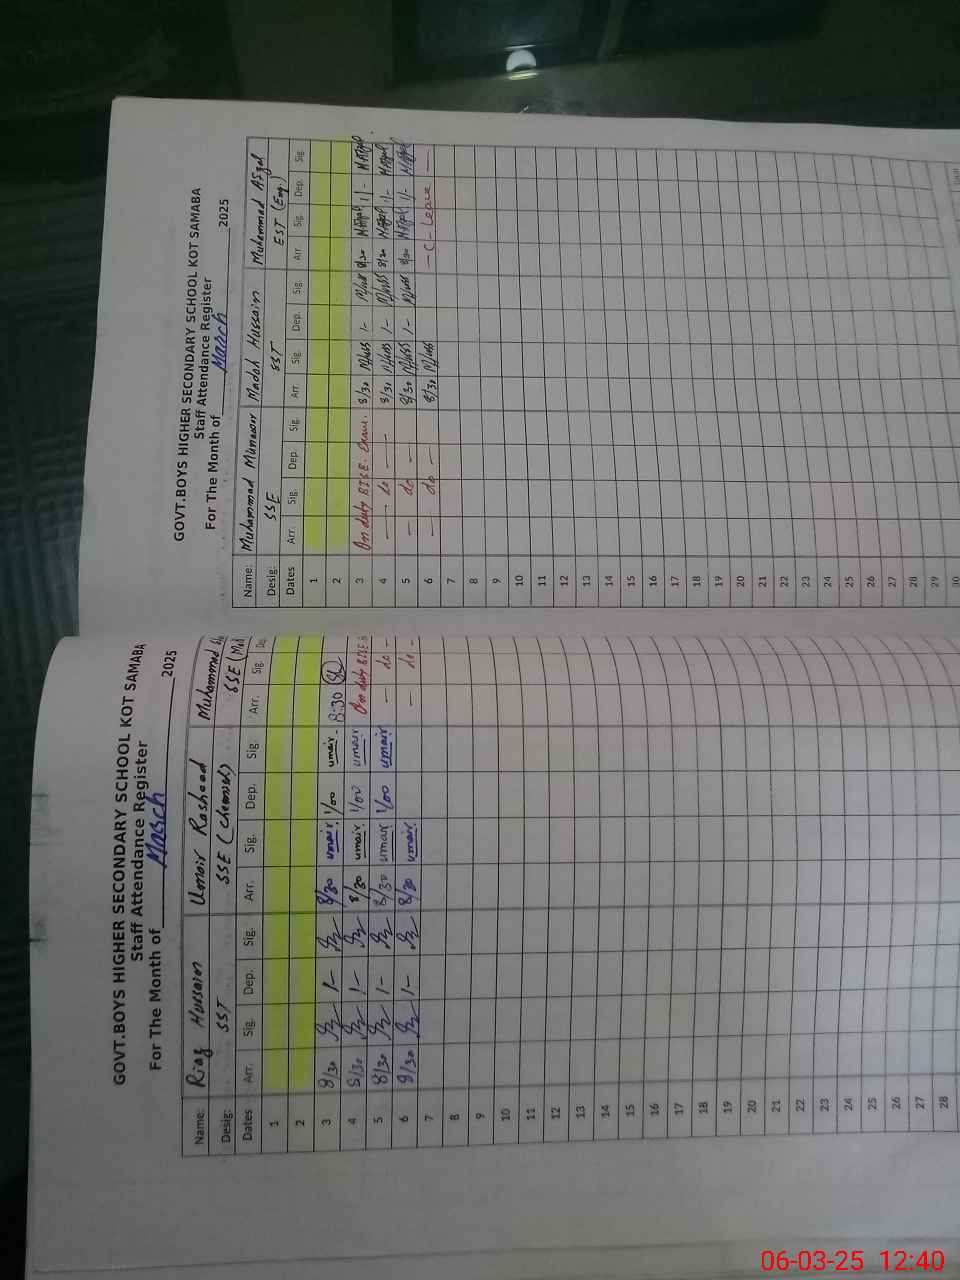 GOVT.BOYS HIGHER SECONDARY SCHOOL KOT SAMABA
Staff Attendance Register
For The Month of March 2025
Name: Riaz Hussain Umair Rasheed Muhammad
Desig: SST SSE (Chemist) SSE
Dates Arr. Sig. Dep. Sig. Arr. Sig. Dep. Sig. Arr. Sig. De
1
2
3 8/30 1- 8/30 umair 1/00 umair 8:30
4 8/30 1- 8/30 umair 1/00 umair On duty BISE
5 8/30 1- 8/30 umair 1/00 umair - do -
6 8/30 1- 8/30 umair - do -
7
8
9
10
11
12
13
14
15
16
17
18
19
20
21
22
23
24
25
26
27
28
GOVT.BOYS HIGHER SECONDARY SCHOOL KOT SAMABA
Staff Attendance Register
For The Month of March 2025
Name: Muhammad Munawar Madah Hussain Muhammad Afzal
Desig: SSE SST EST (Eng.)
Dates Arr. Sig. Dep. Sig. Arr. Sig. Dep. Sig. Arr. Sig. Dep. Sig.
1
2
3 On duty BISE. Exam. 8/30 M/Huss 1- M/Huss 8/30 M Afzal 1/- M Afzal
4 - do - 8/30 M/Huss 1- M/Huss 8/30 M Afzal 1/- M Afzal
5 - do - 8/30 M/Huss 1- M/Huss 8/30 M Afzal 1/- M Afzal
6 - do - 8/30 M/Huss - C - Leave -
7
8
9
10
11
12
13
14
15
16
17
18
19
20
21
22
23
24
25
26
27
28
29
30
06-03-25 12:40